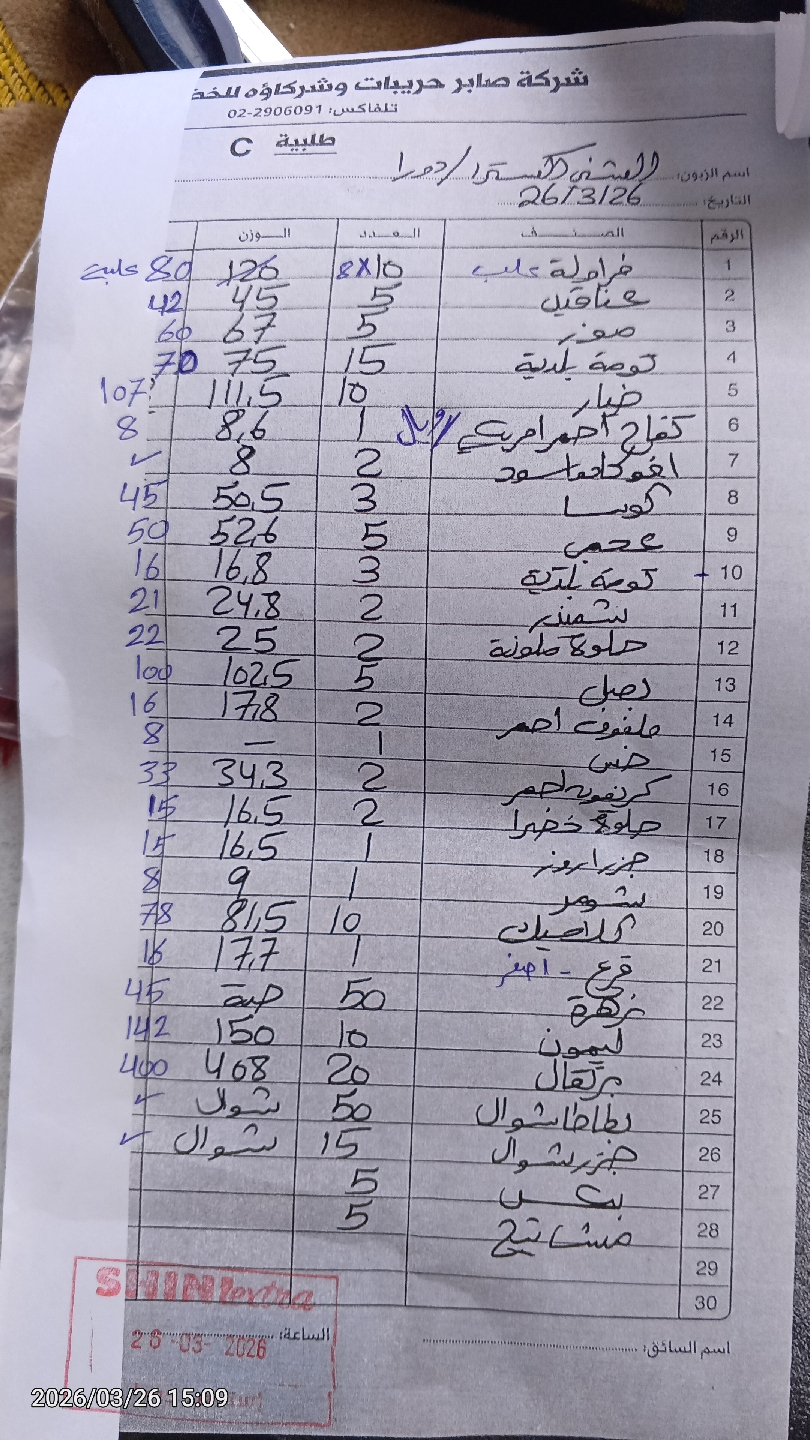 شركة صابر حريبات وشركاؤه للخض
تلفاكس: 02-2906091
طلبية C
اسم الزبون: الشني اكسترا / دورا
التاريخ: 26/3/26
الرقم الصنف العدد الوزن
1 فراولة علب 8x10 126 80 علبة
2 عناقيد 5 45 42
3 موز 5 67 60
4 بندورة بلدية 15 75 70
5 خيار 10 111,5 107
6 تفاح أحمر امريكي 1 8,6 8
7 افوكادو اسود 2 8 ✓
8 كوسا 3 50,5 45
9 عجمي 5 52,6 50
10 ثومة بلدية 3 16,8 16
11 شمندر 2 24,8 21
12 حلوة ملونة 2 25 22
13 بصل 5 102,5 100
14 ملفوف احمر 2 17,8 16
15 خس 1 — 8
16 كريفوت احمر 2 34,3 33
17 حلوة خضرا 2 16,5 15
18 جزر اروز 1 16,5 15
19 شومر 1 9 8
20 كلاصيك 10 81,5 78
21 قرع - اصفر 1 17,7 16
22 زهرة 50 حبة 45
23 ليمون 10 150 142
24 برتقال 20 468 400
25 بطاطا شوال 50 شوال ✓
26 جزر شوال 15 شوال ✓
27 5
28 مشاتيح 5
29
30
اسم السائق: الساعة:
SHINI extra
26-03-2026
2026/03/26 15:09